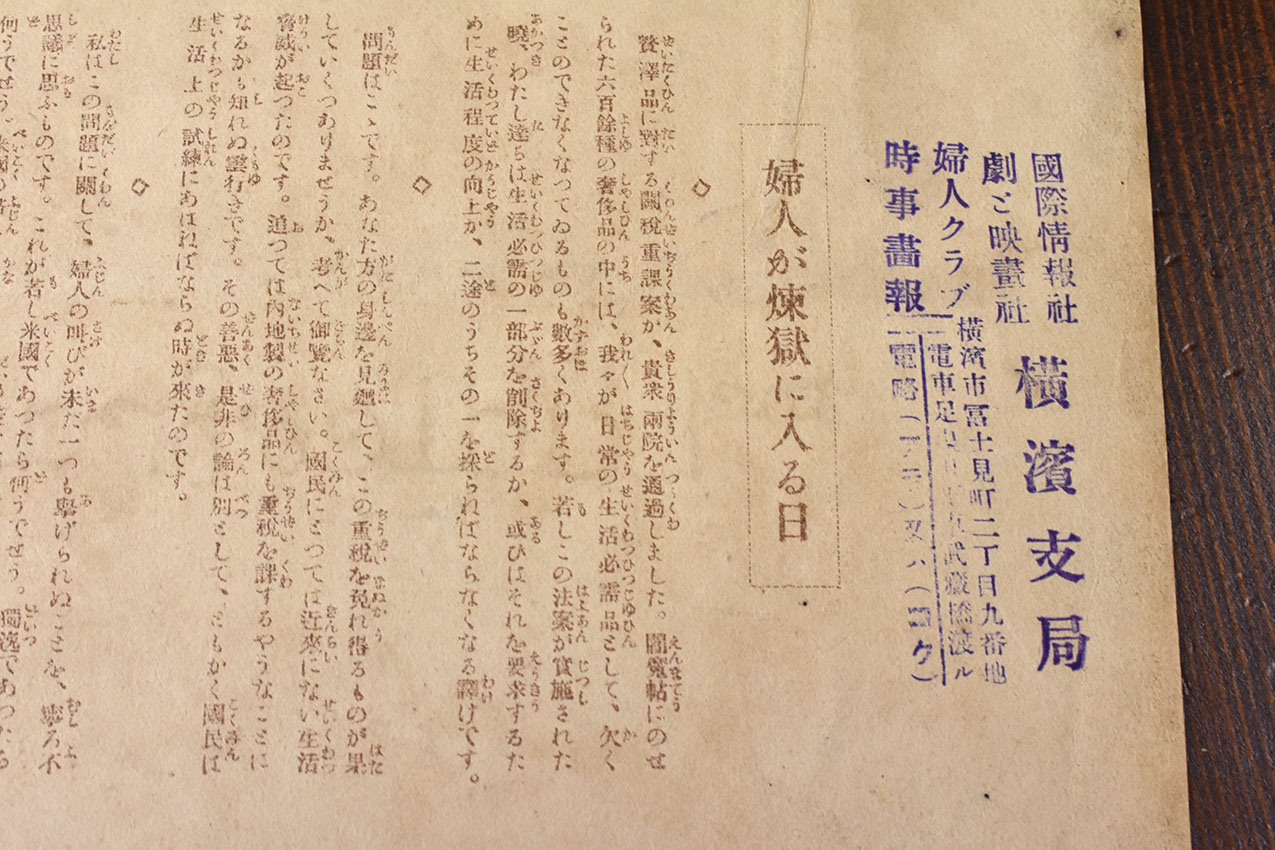 國際情報社
劇と映畫社
婦人クラブ
時事畫報
橫濱支局
橫濱市冨士見町二丁目九番地
電車足橋渡ル
電略(又ハ(ヨコク)
婦人が煉獄に入る日
◇
贅澤品に對する關稅重課案が、貴衆兩院を通過しました。閻魔帖にのせ
られた六百餘種の奢侈品の中には、我々が日常の生活必需品として、欠く
ことのできなくなつてゐるものも數多くあります。若しこの法案が實施された
曉、わたし達ちは生活必需の一部分を削除するか、或ひはそれを要求するた
めに生活程度の向上か、二途のうちその一を採らねばならなくなる譯けです。
◇
問題はこゝです。あなた方の身邊を見廻して、この重稅を免れ得るものが果
していくつありませうか、考へて御覽なさい。國民にとつては近來にない生活
脅威が起つたのです。追つては內地製の奢侈品にも重稅を課するやうなことに
なるかも知れぬ雲行きです。その善惡、是非の論は別として、ともかく國民は
生活上の試練にあはねばならぬ時が來たのです。
◇
私はこの問題に關して、婦人の叫びが未だ一つも擧げられぬことを、寧ろ不
思議に思ふものです。これが若し米國であつたら何うでせう。獨逸であつたら
何うでせう。